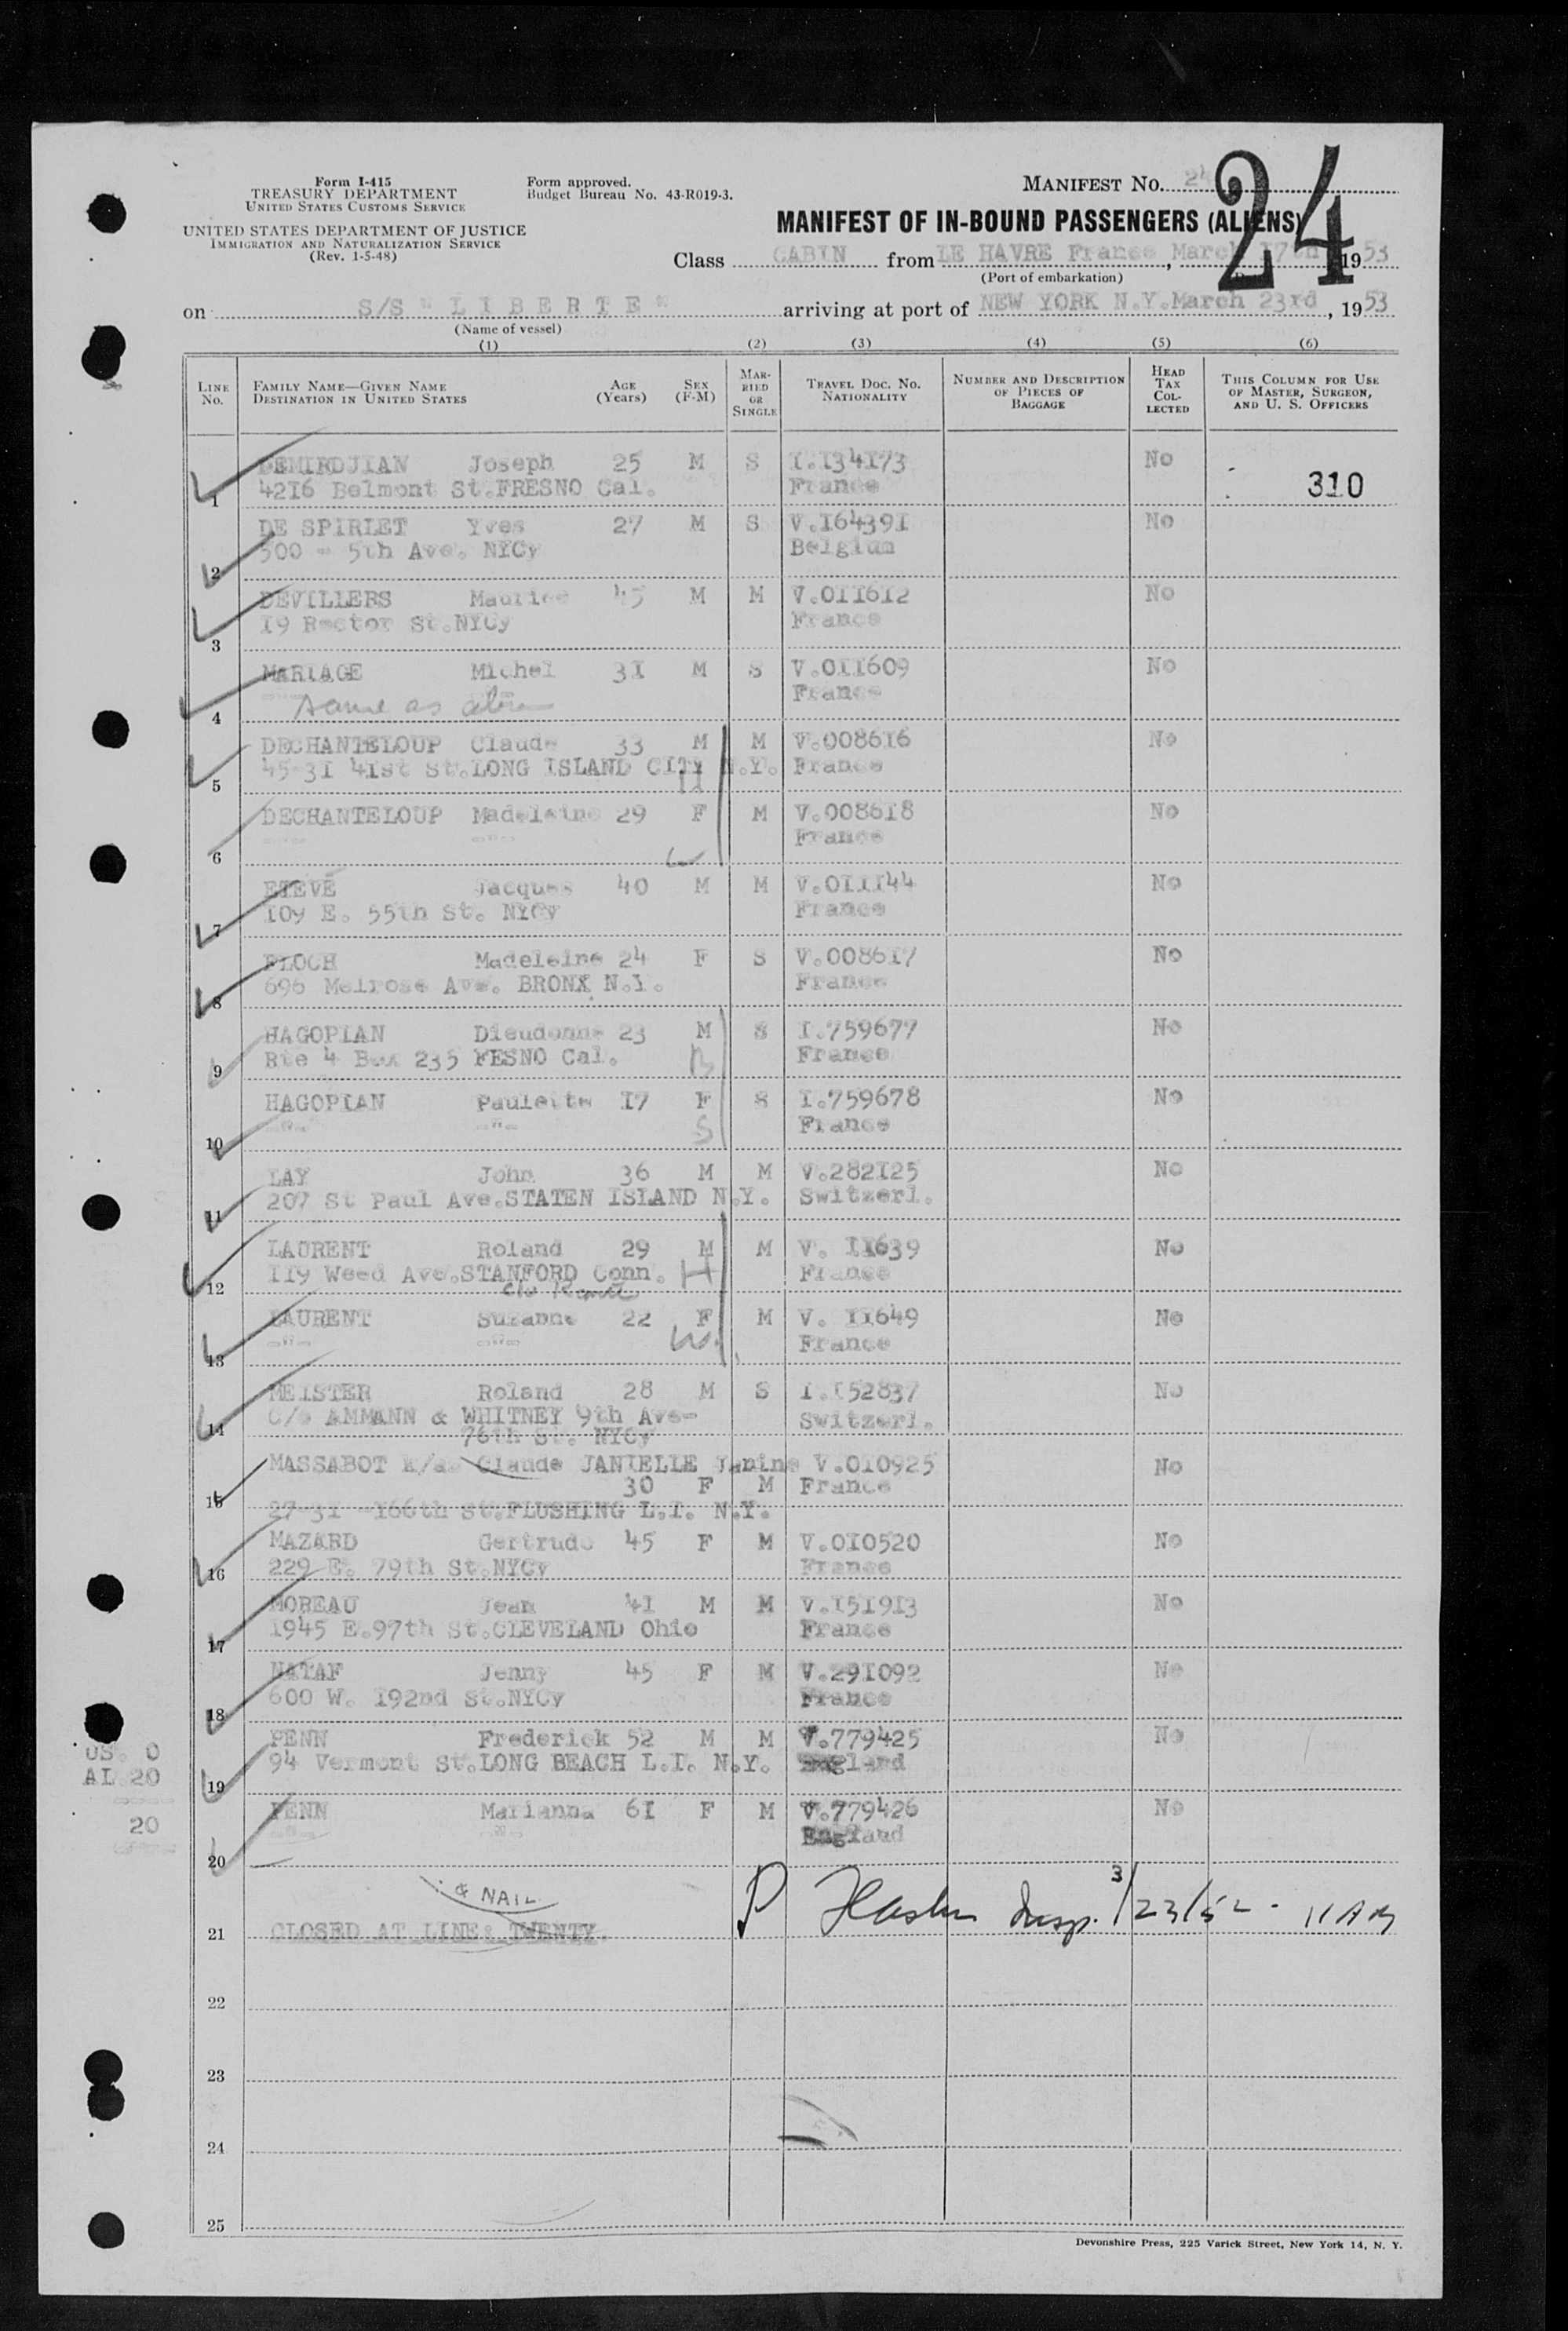 Form I-415
TREASURY DEPARTMENT
UNITED STATES CUSTOMS SERVICE
UNITED STATES DEPARTMENT OF JUSTICE
IMMIGRATION AND NATURALIZATION SERVICE
(Rev. 1-5-48)
Form approved.
Budget Bureau No. 43-R019-3.
MANIFEST No. 24
24
MANIFEST OF IN-BOUND PASSENGERS (ALIENS)
Class CABIN from LE HAVRE France, March 17th 1953
(Port of embarkation)
on S/S " L I B E R T E " arriving at port of NEW YORK N.Y. March 23rd, 1953
(Name of vessel)
(1) (2) (3) (4) (5) (6)
LINE No. FAMILY NAME—GIVEN NAME DESTINATION IN UNITED STATES AGE (Years) SEX (F-M) MARRIED OR SINGLE TRAVEL DOC. NO. NATIONALITY NUMBER AND DESCRIPTION OF PIECES OF BAGGAGE HEAD TAX COLLECTED THIS COLUMN FOR USE OF MASTER, SURGEON, AND U. S. OFFICERS
1 DEMIRDJIAN Joseph 25 M S I.I34I73 No
4216 Belmont St.FRESNO Cal. France 310
2 DE SPIRLET Yves 27 M S V.I6439I No
500 - 5th Ave. NYCy Belgium
3 DEVILLERS Maurice 45 M M V.0II6I2 No
I9 Rector St.NYCy France
4 MARIAGE Michel 3I M S V.0II609 No
Same as above France
5 DECHANTELOUP Claude 33 M M V.0086I6 No
45-3I 4Ist St.LONG ISLAND CITY N.Y. France
H
6 DECHANTELOUP Madeleine 29 F M V.0086I8 No
-"- -"- France
W
7 ETEVE Jacques 40 M M V.0III44 No
I09 E. 55th St. NYCy France
8 FLOCH Madeleine 24 F S V.0086I7 No
696 Melrose Ave. BRONX N.Y. France
9 HAGOPIAN Dieudonne 23 M S I.759677 No
Rte 4 Box 235 FESNO Cal. B France
10 HAGOPIAN Paulette I7 F S I.759678 No
-"- -"- S France
11 LAY John 36 M M V.282I25 No
207 St Paul Ave.STATEN ISLAND N.Y. Switzerl.
12 LAURENT Roland 29 M M V. II639 No
II9 Weed Ave.STANFORD Conn. H France
c/o
13 LAURENT Suzanne 22 F M V. II649 No
-"- -"- W. France
14 MEISTER Roland 28 M S I.I52837 No
C/o AMMANN & WHITNEY 9th Ave- Switzerl.
76th St. NYCy
15 MASSABOT k/as Claude JANIELLE Janine V.0I0925 No
30 F M France
27-3I -I66th St.FLUSHING L.I. N.Y.
16 MAZARD Gertrude 45 F M V.0I0520 No
229 E. 79th St.NYCy France
17 MOREAU Jean 4I M M V.I5I9I3 No
I945 E.97th St.CLEVELAND Ohio France
18 NATAF Jenny 45 F M V.29I092 No
600 W. I92nd St.NYCy France
19 PENN Frederick 52 M M V.779425 No
94 Vermont St.LONG BEACH L.I. N.Y. England
20 PENN Marianna 6I F M V.779426 No
-"- -"- England
US. 0
AL 20
20
& NAIL
21 CLOSED AT LINE: TWENTY. Insp. 3/23/52 - 11 AM
22
23
24
25
Devonshire Press, 225 Varick Street, New York 14, N. Y.